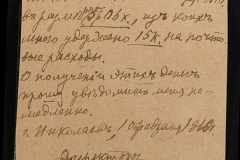 въ разм. 135 р. 06 к., изъ коихъ
мною удержано 15 к. на почто-
вые расходы.
О полученіи этихъ денегъ
прошу увѣдомить меня не-
медленно.
г. Николаевъ, 1 февраля